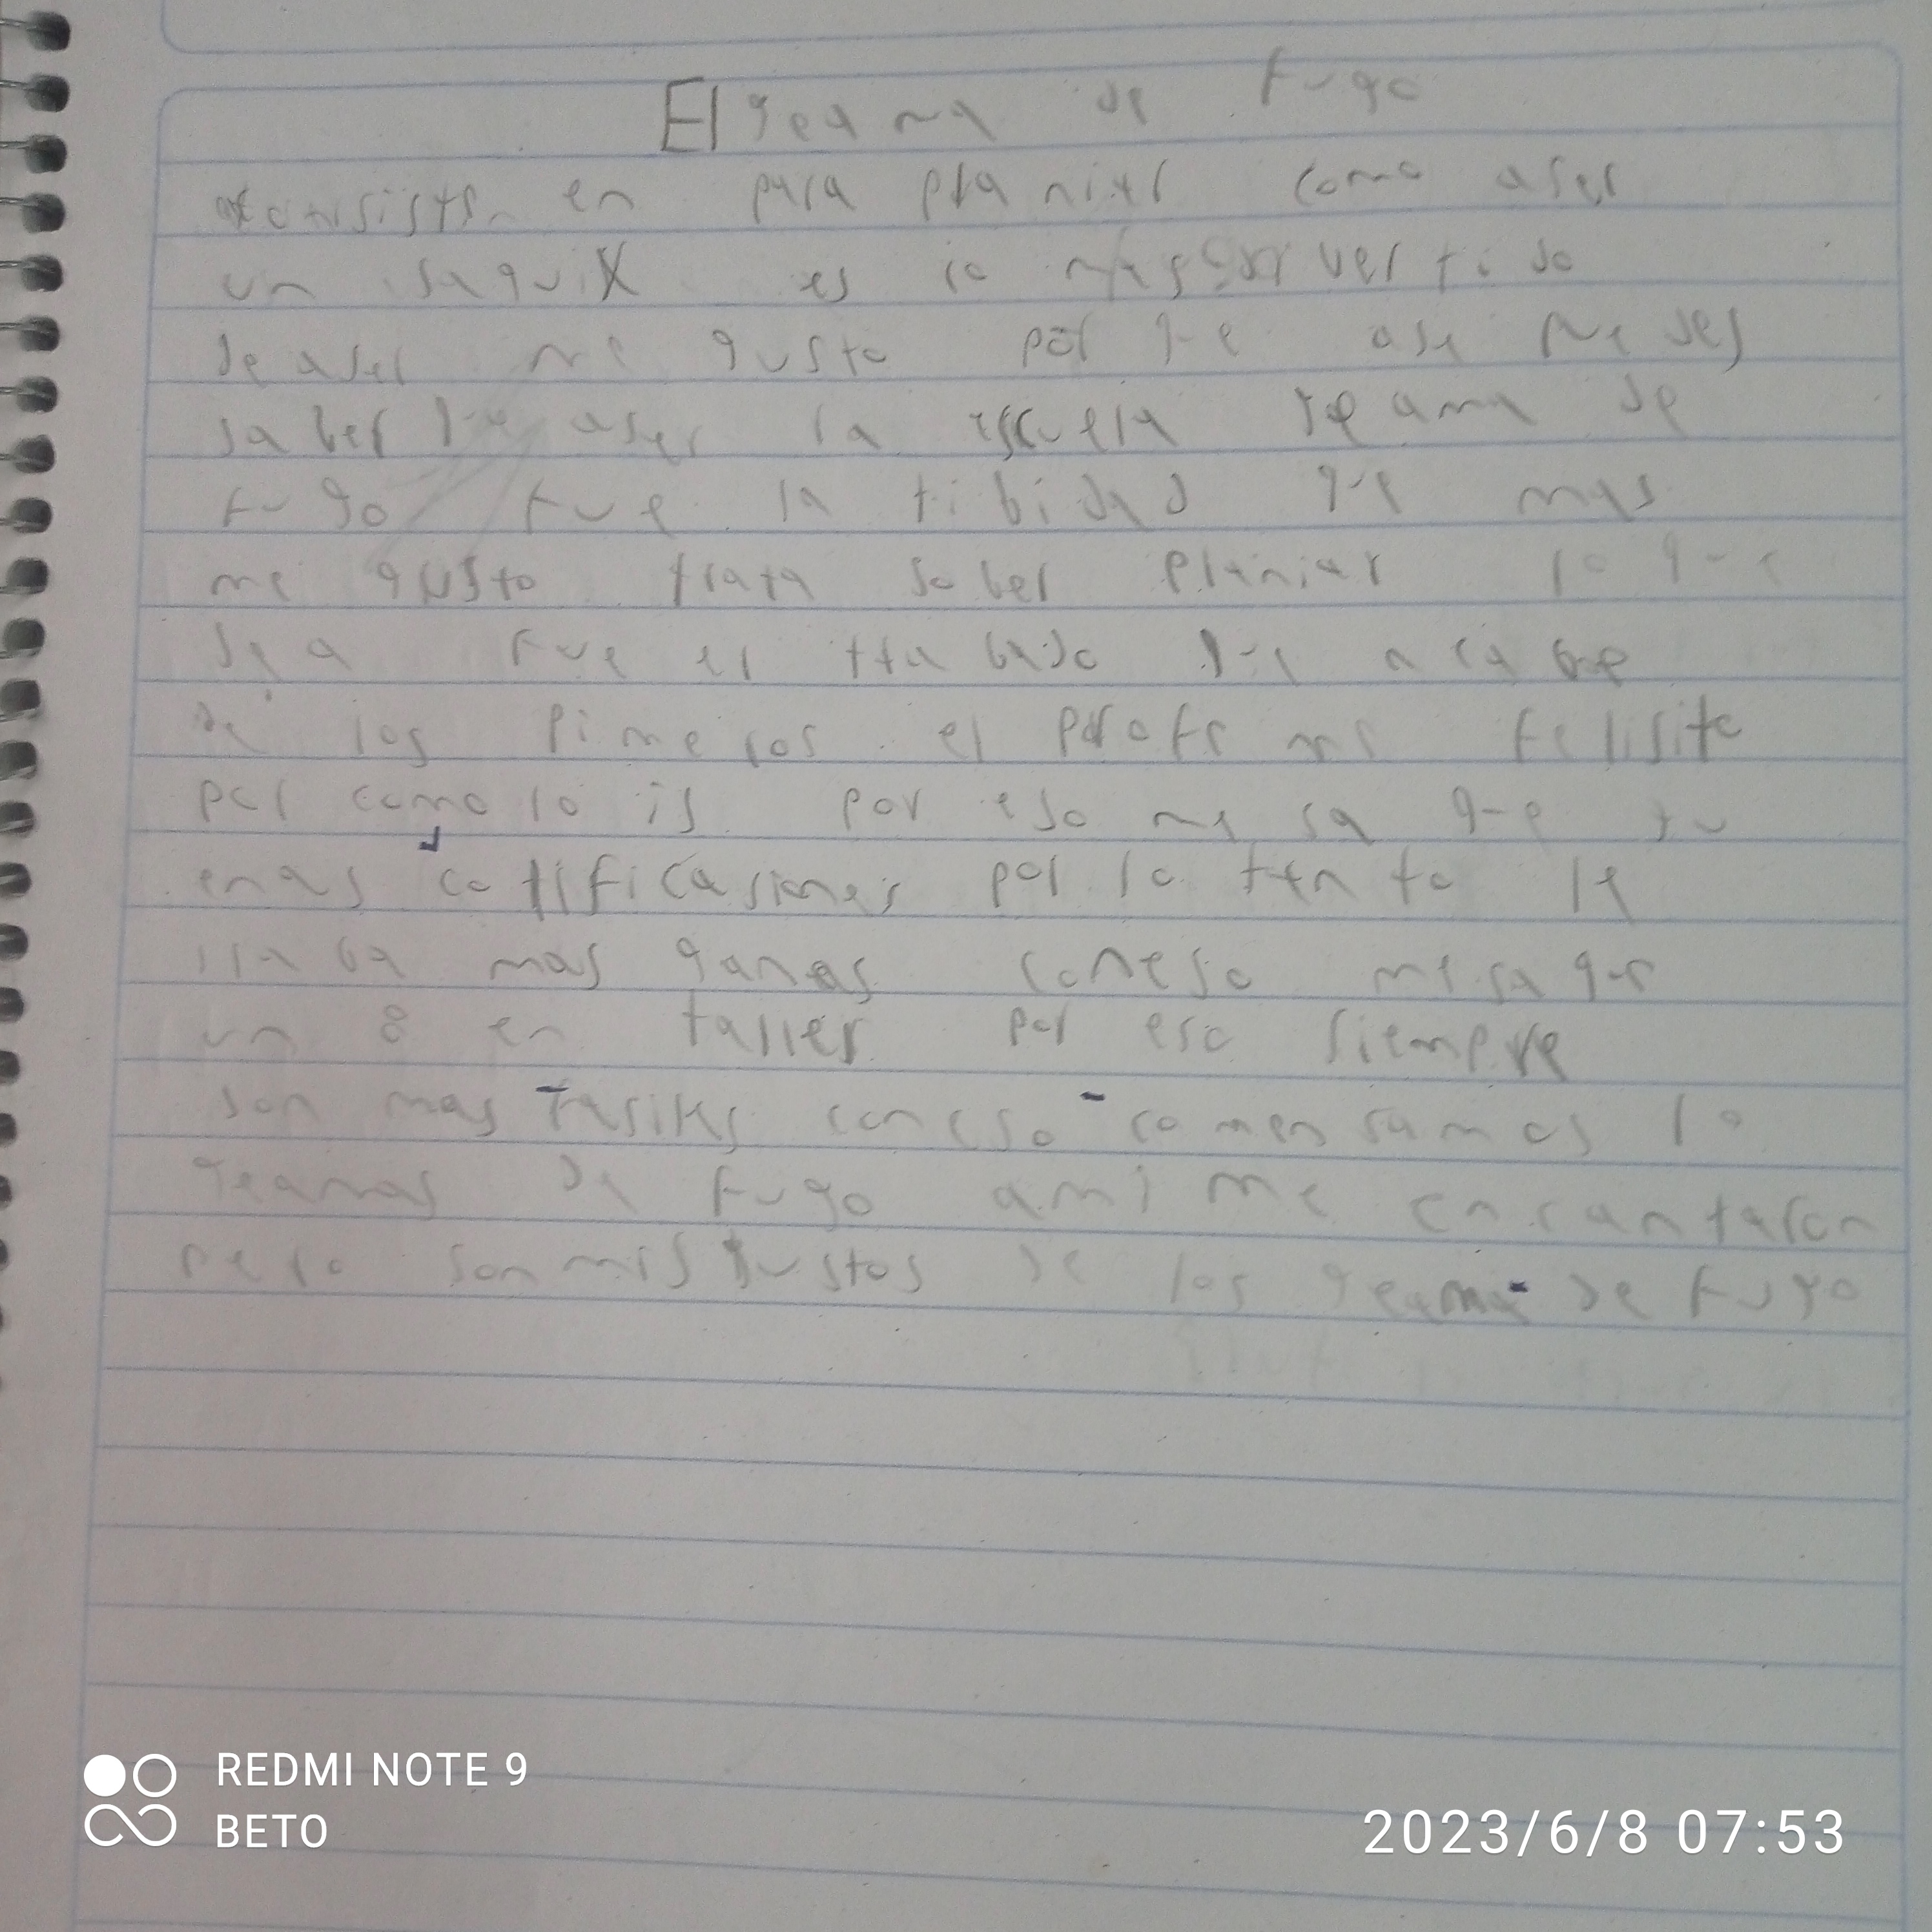 El geama de fugo
consiste en para planiar como aser
un saquix es lo mas divertido
de aser me gusto por que ase me des
saber que aser la escuela geama de
fugo fue la tibidad que mas
me gusto trata saber planiar lo que
sea fue el trabado que acabe
de los pimeros el profe me felisito
por como lo is por eso me saque
enas calificasiones por lo tanto le
llaba mas ganas coneso me saque
un 8 en taller por eso siempre
son mas fasiles coneso comensamos lo
geamas de fugo ami me encantaron
pero son mis gustos de los geama de fugo
REDMI NOTE 9
BETO
2023/6/8 07:53